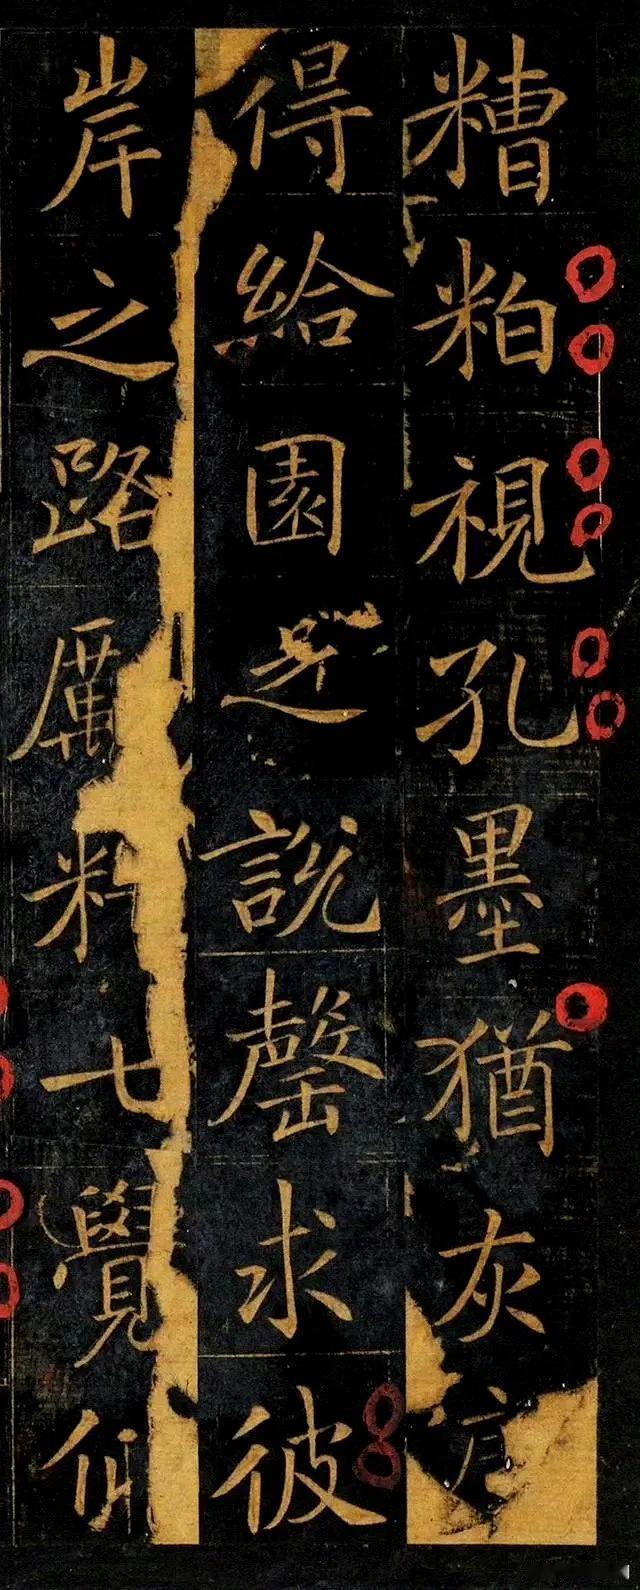 糟粕視孔墨猶灰
得給園說罄求彼
岸之路厲料七覺